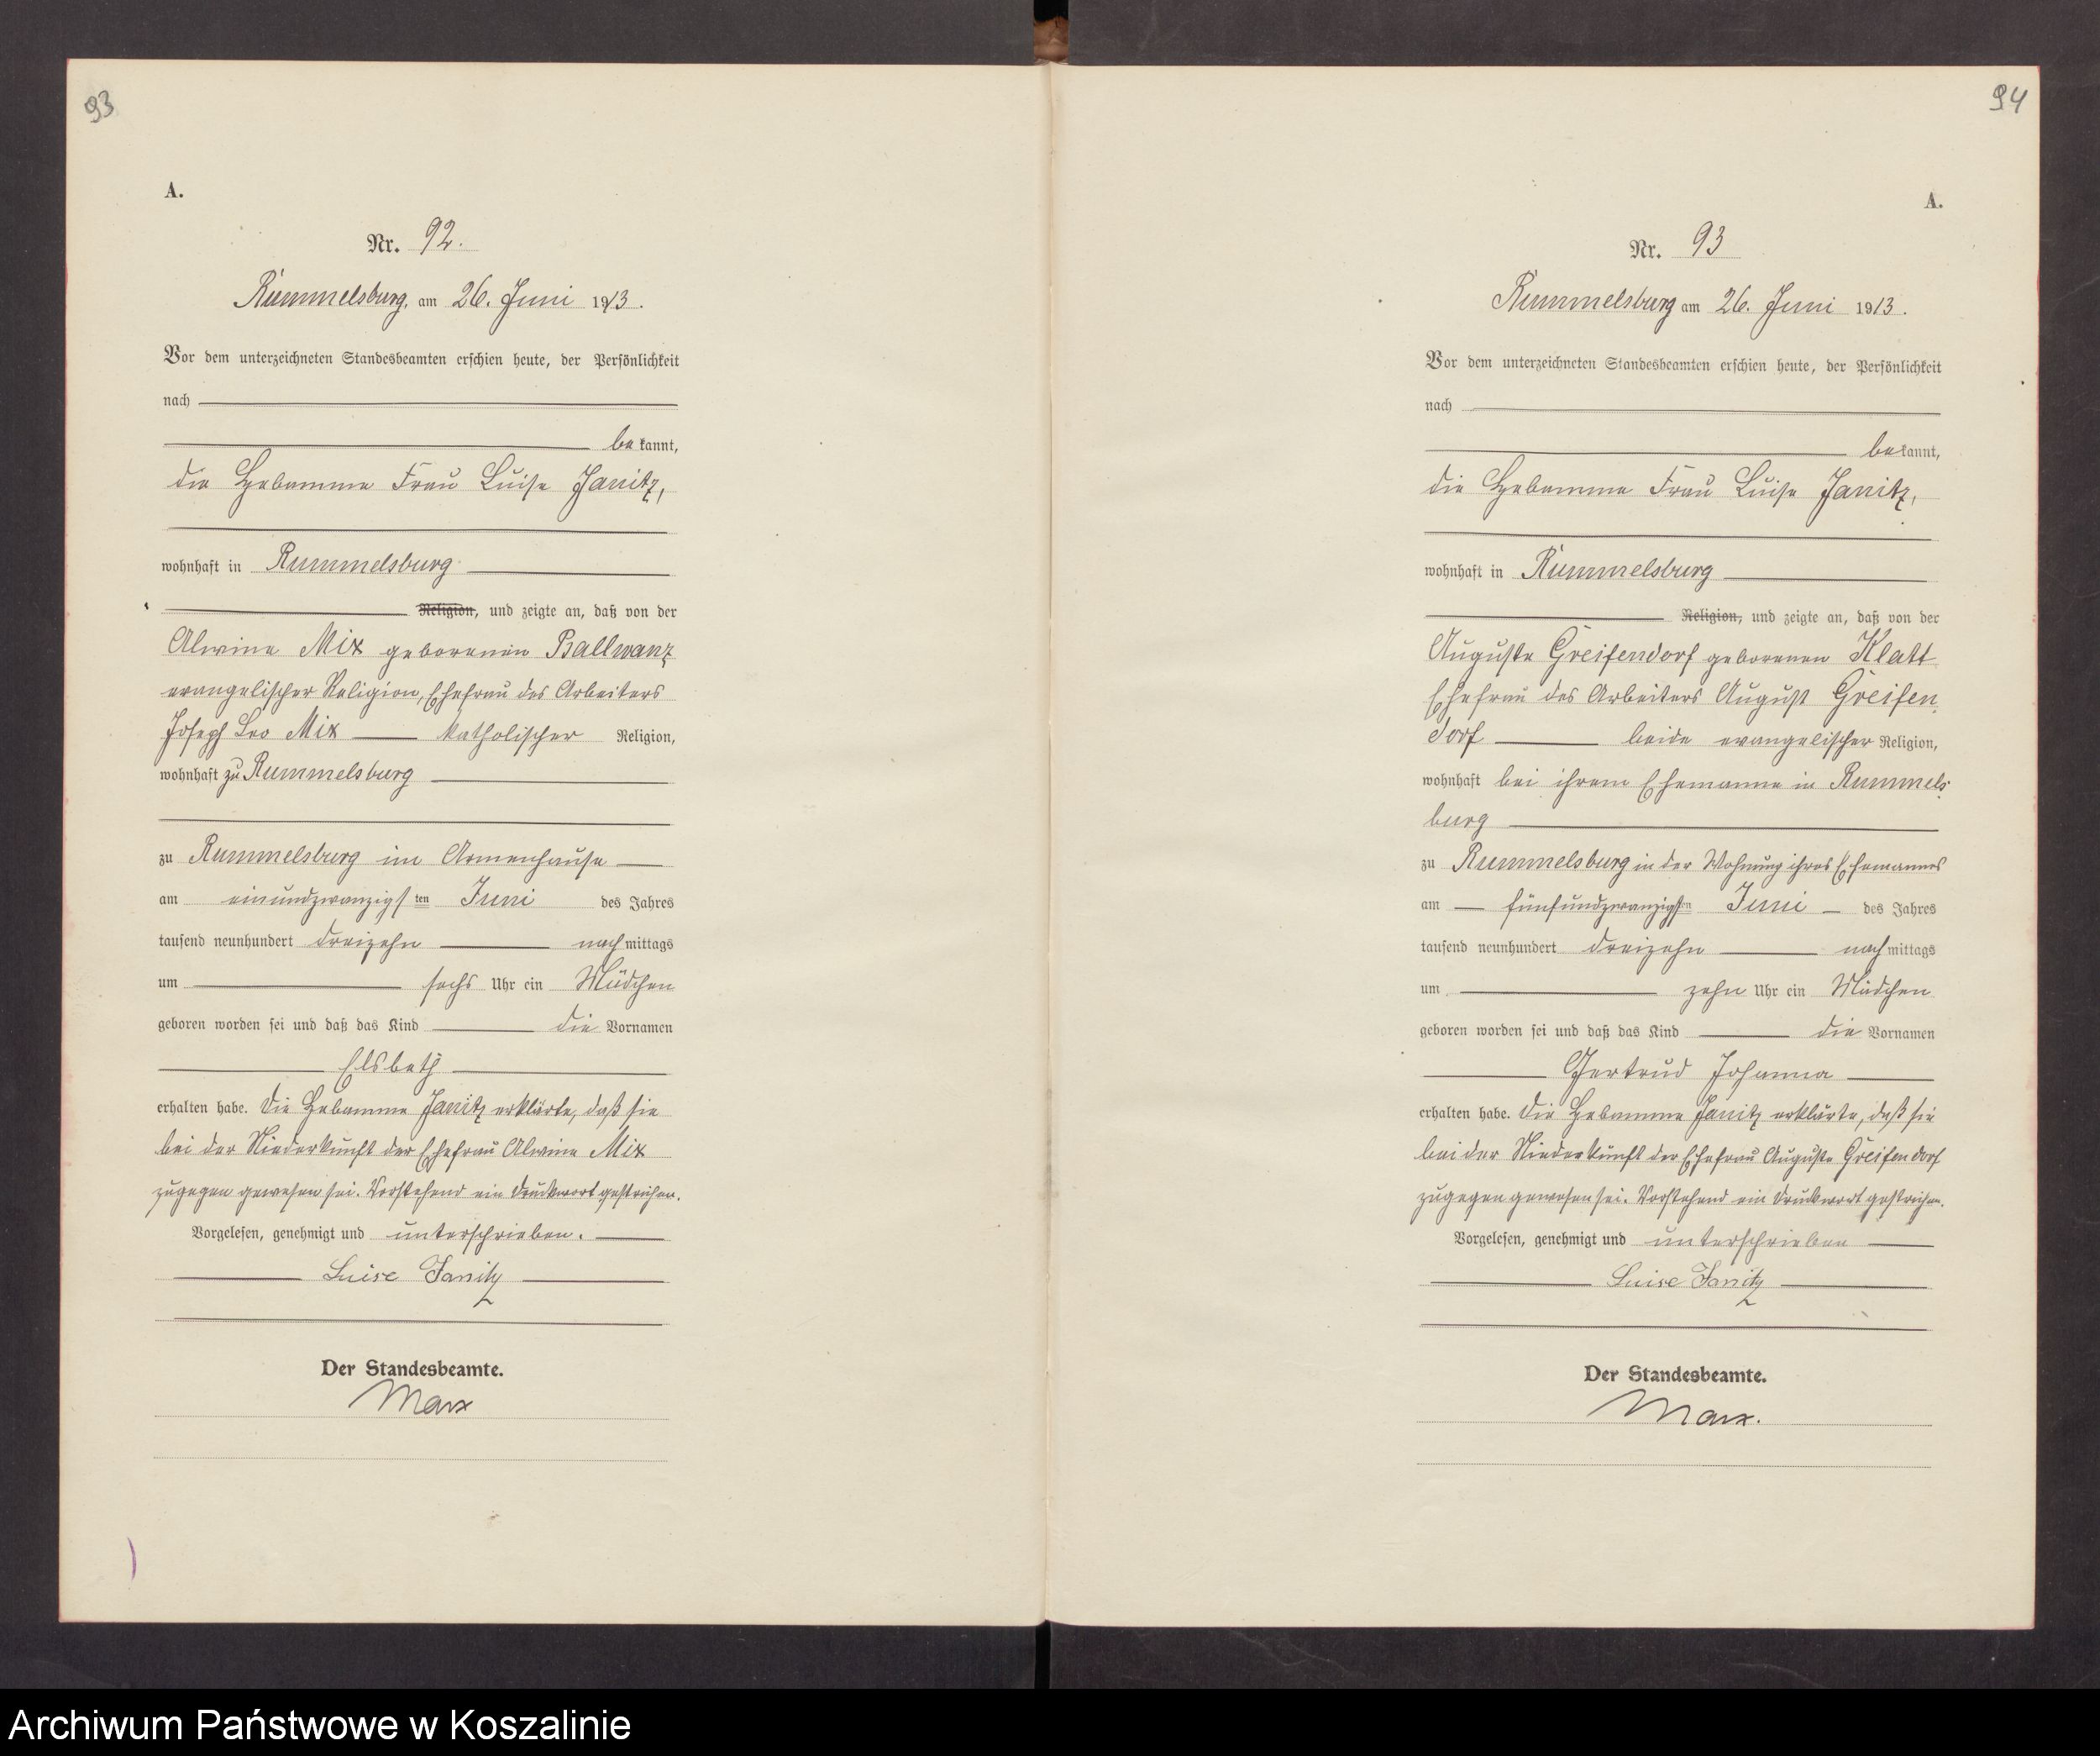 93
A.
Nr. 92.
Rummelsburg, am 26. Juni 1913.
Vor dem unterzeichneten Standesbeamten erschien heute, der Persönlichkeit
nach
bekannt,
die Hebamme Frau Luise Janitz,
wohnhaft in Rummelsburg
Religion, und zeigte an, daß von der
Alwine Mix geborenen Ballwanz
evangelischer Religion, Ehefrau des Arbeiters
Joseph Leo Mix katholischer Religion,
wohnhaft zu Rummelsburg
zu Rummelsburg im Armenhause
am einundzwanzigsten Juni des Jahres
tausend neunhundert dreizehn nachmittags
um sechs Uhr ein Mädchen
geboren worden sei und daß das Kind die Vornamen
Elsbeth
erhalten habe. Die Hebamme Janitz erklärte, daß sie
bei der Niederkunft der Ehefrau Alwine Mix
zugegen gewesen sei. Vorstehend ein Druckwort gestrichen.
Vorgelesen, genehmigt und unterschrieben.
Luise Janitz
Der Standesbeamte.
Marx
94
A.
Nr. 93
Rummelsburg am 26. Juni 1913.
Vor dem unterzeichneten Standesbeamten erschien heute, der Persönlichkeit
nach
bekannt,
die Hebamme Frau Luise Janitz,
wohnhaft in Rummelsburg
Religion, und zeigte an, daß von der
Auguste Greifendorf geborenen Klatt
Ehefrau des Arbeiters August Greifen
dorf beide evangelischer Religion,
wohnhaft bei ihrem Ehemanne in Rummels
burg
zu Rummelsburg in der Wohnung ihres Ehemannes
am fünfundzwanzigsten Juni des Jahres
tausend neunhundert dreizehn nachmittags
um zehn Uhr ein Mädchen
geboren worden sei und daß das Kind die Vornamen
Gertrud Johanna
erhalten habe. Die Hebamme Janitz erklärte, daß sie
bei der Niederkunft der Ehefrau Auguste Greifendorf
zugegen gewesen sei. Vorstehend ein Druckwort gestrichen.
Vorgelesen, genehmigt und unterschrieben
Luise Janitz
Der Standesbeamte.
Marx.
Archiwum Państwowe w Koszalinie